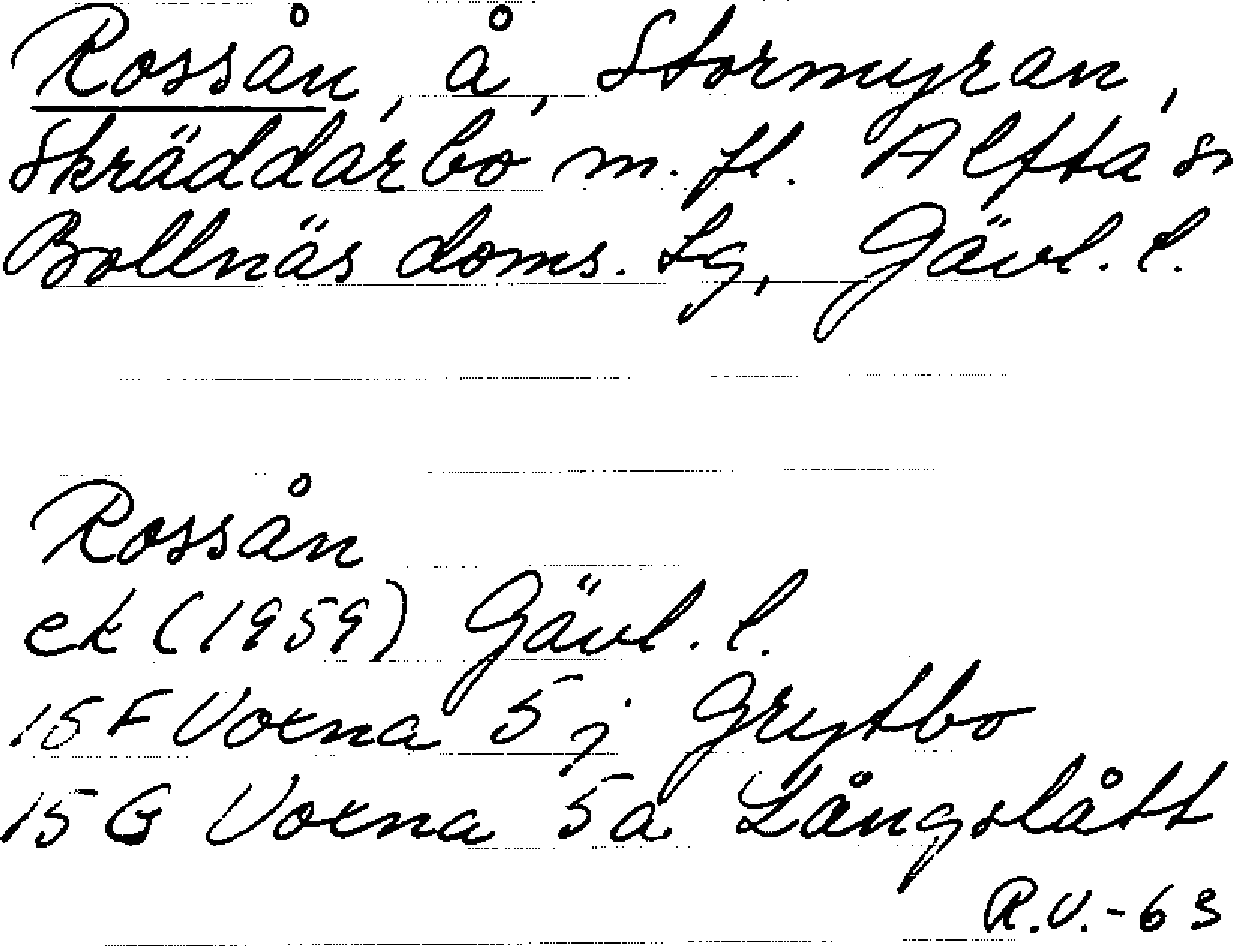 Rossån, å, Stormyran,
Skräddarbo m.fl. Alfta sn
Bollnäs doms. lg, Gävl. l.
Rossån
ek (1959) Gävl. l.
15 F Voxna 5 j Grytbo
15 G Voxna 5a Långslått
R.V.-63